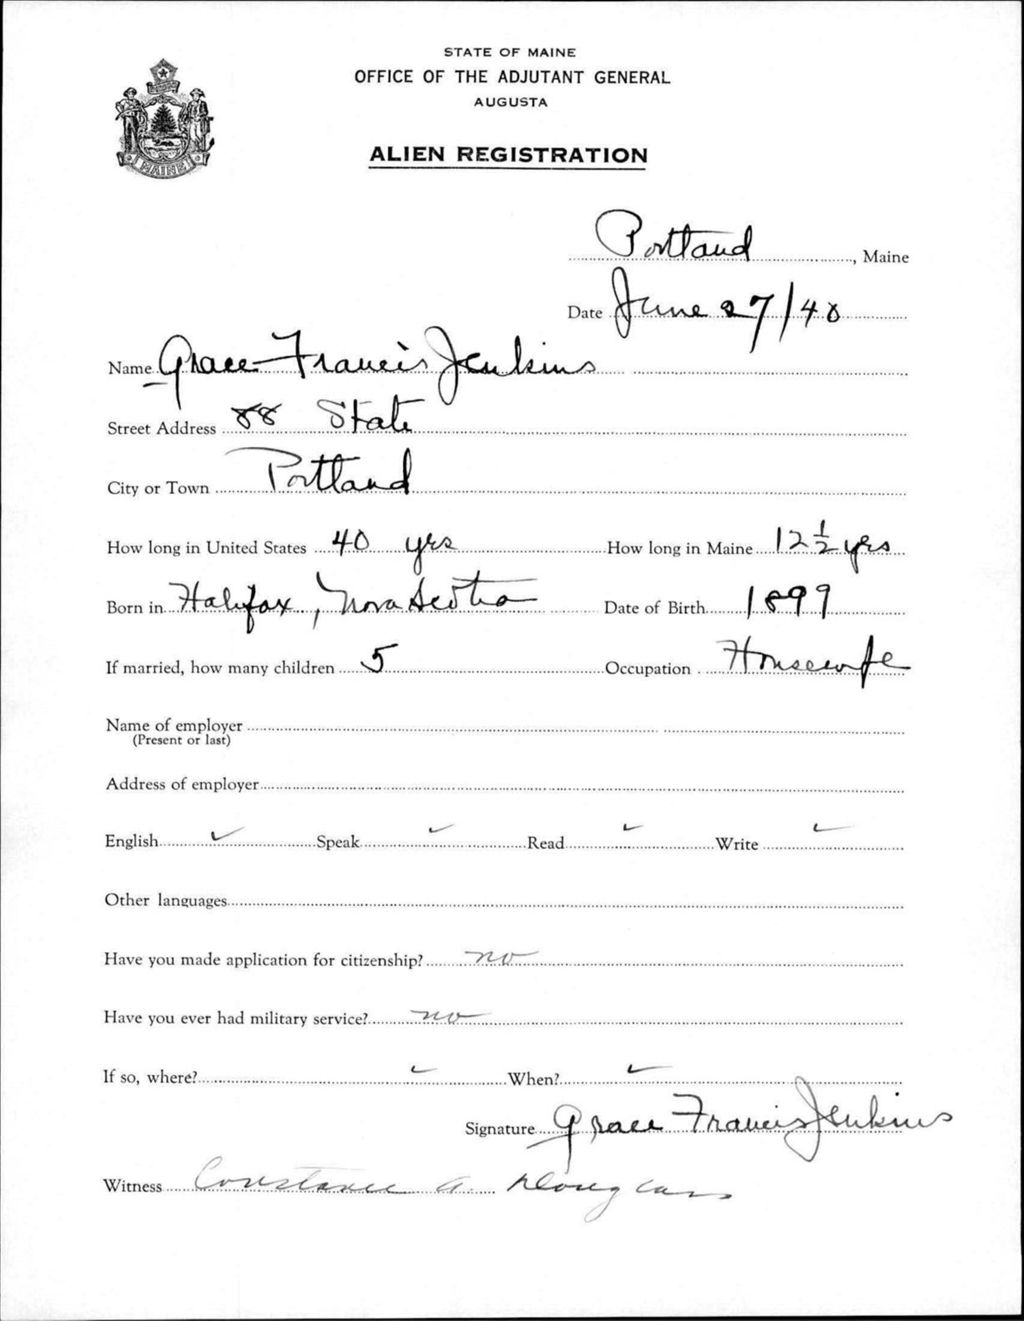 STATE OF MAINE
OFFICE OF THE ADJUTANT GENERAL
AUGUSTA
ALIEN REGISTRATION
MAINE
Portland, Maine
Date June 27/40
Name Grace Francis Jenkins
Street Address 88 State
City or Town Portland
How long in United States 40 yrs How long in Maine 12 1/2 yrs
Born in Halifax, Nova Scotia Date of Birth 1899
If married, how many children 5 Occupation Housewife
Name of employer
(Present or last)
Address of employer
English ✓ Speak ✓ Read ✓ Write ✓
Other languages
Have you made application for citizenship? no
Have you ever had military service? no
If so, where? ✓ When? ✓
Signature Grace Francis Jenkins
Witness Constance A. Douglass